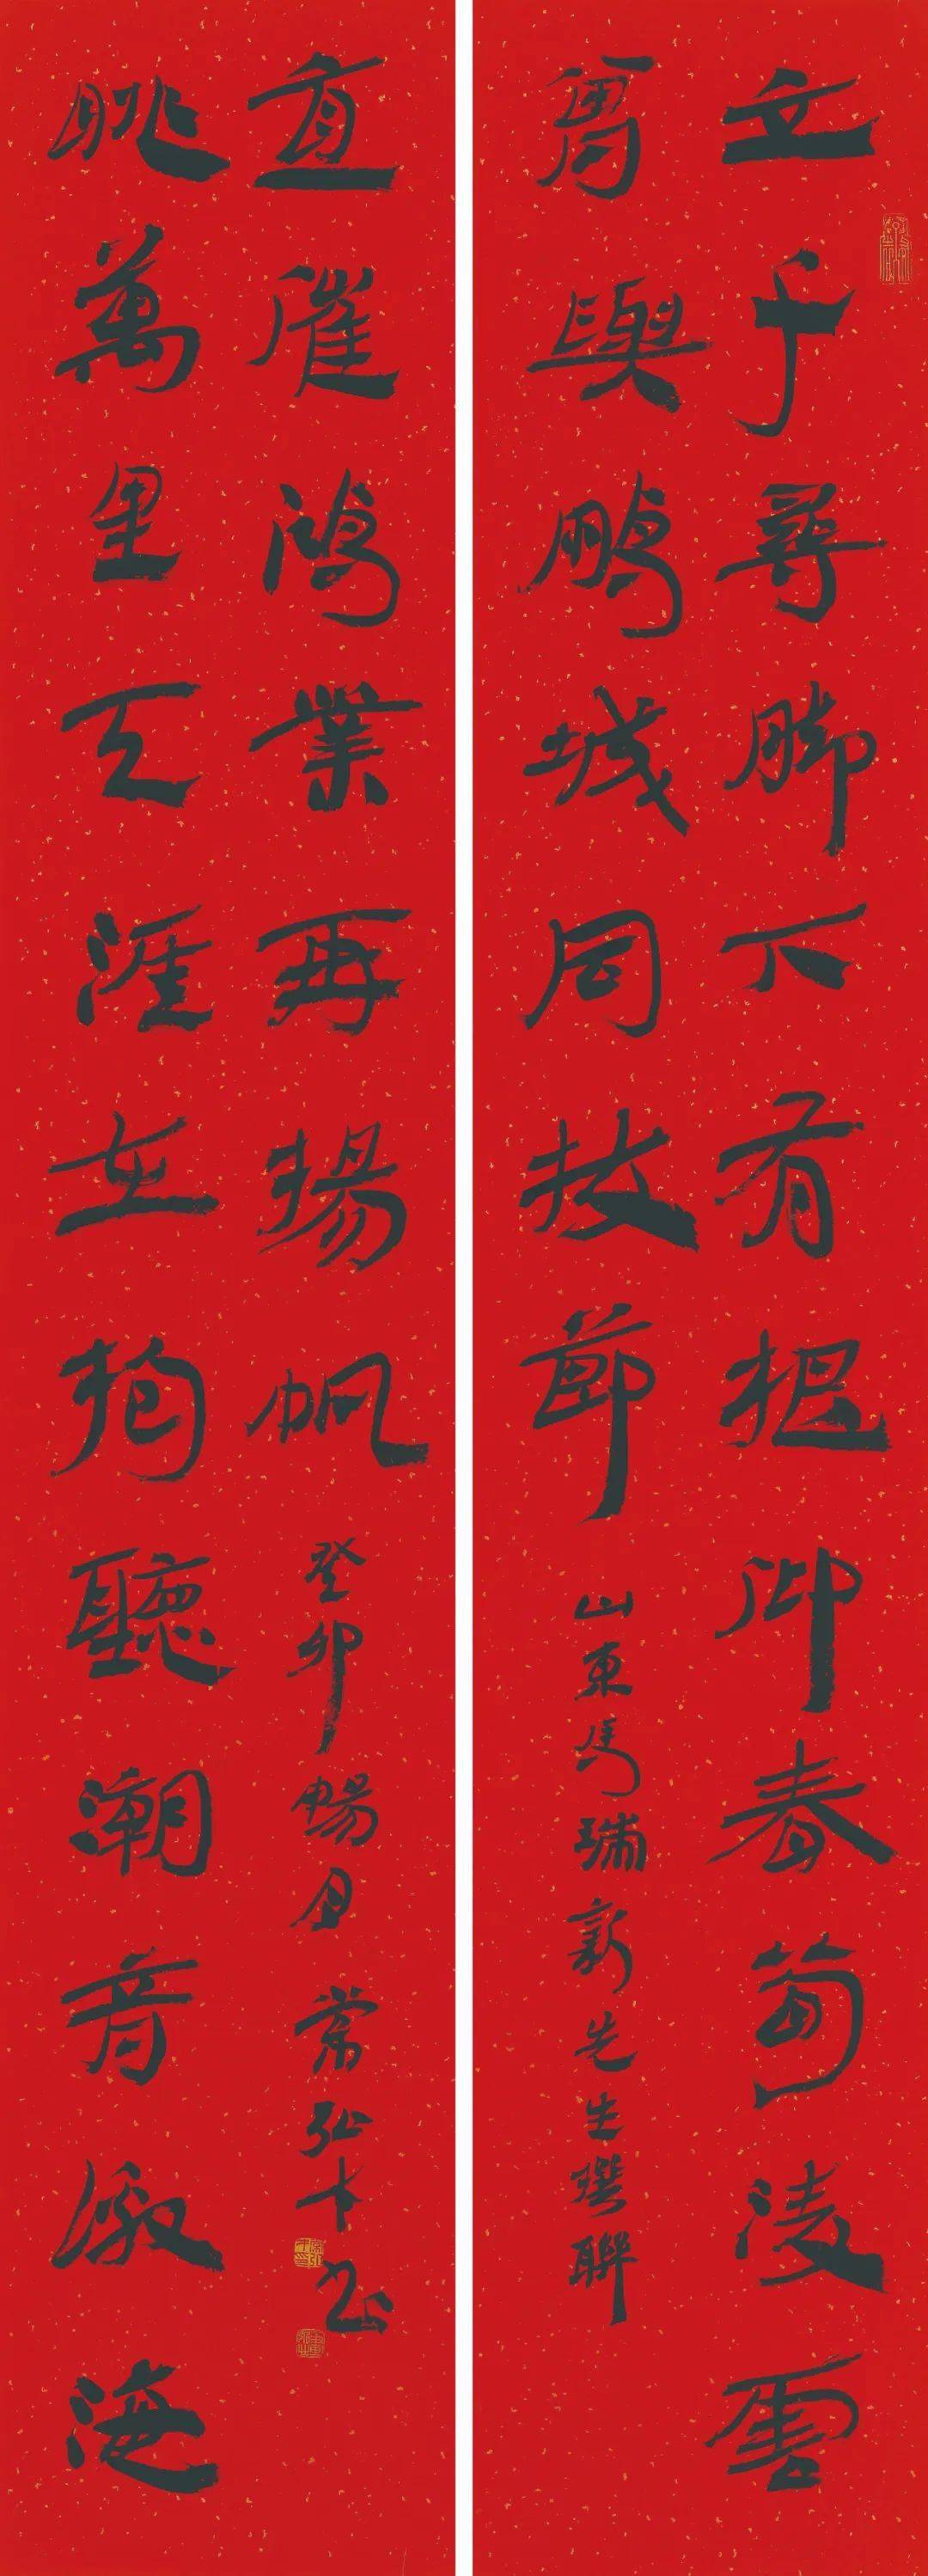 立千尋脚下有根仰春筍凌雲
胥與鵬城同拔節
山東馬瑞新先生撰聯
眺萬里天涯在抱聽潮音激海
直催鴻業再揚帆
癸卯暢月常弘書